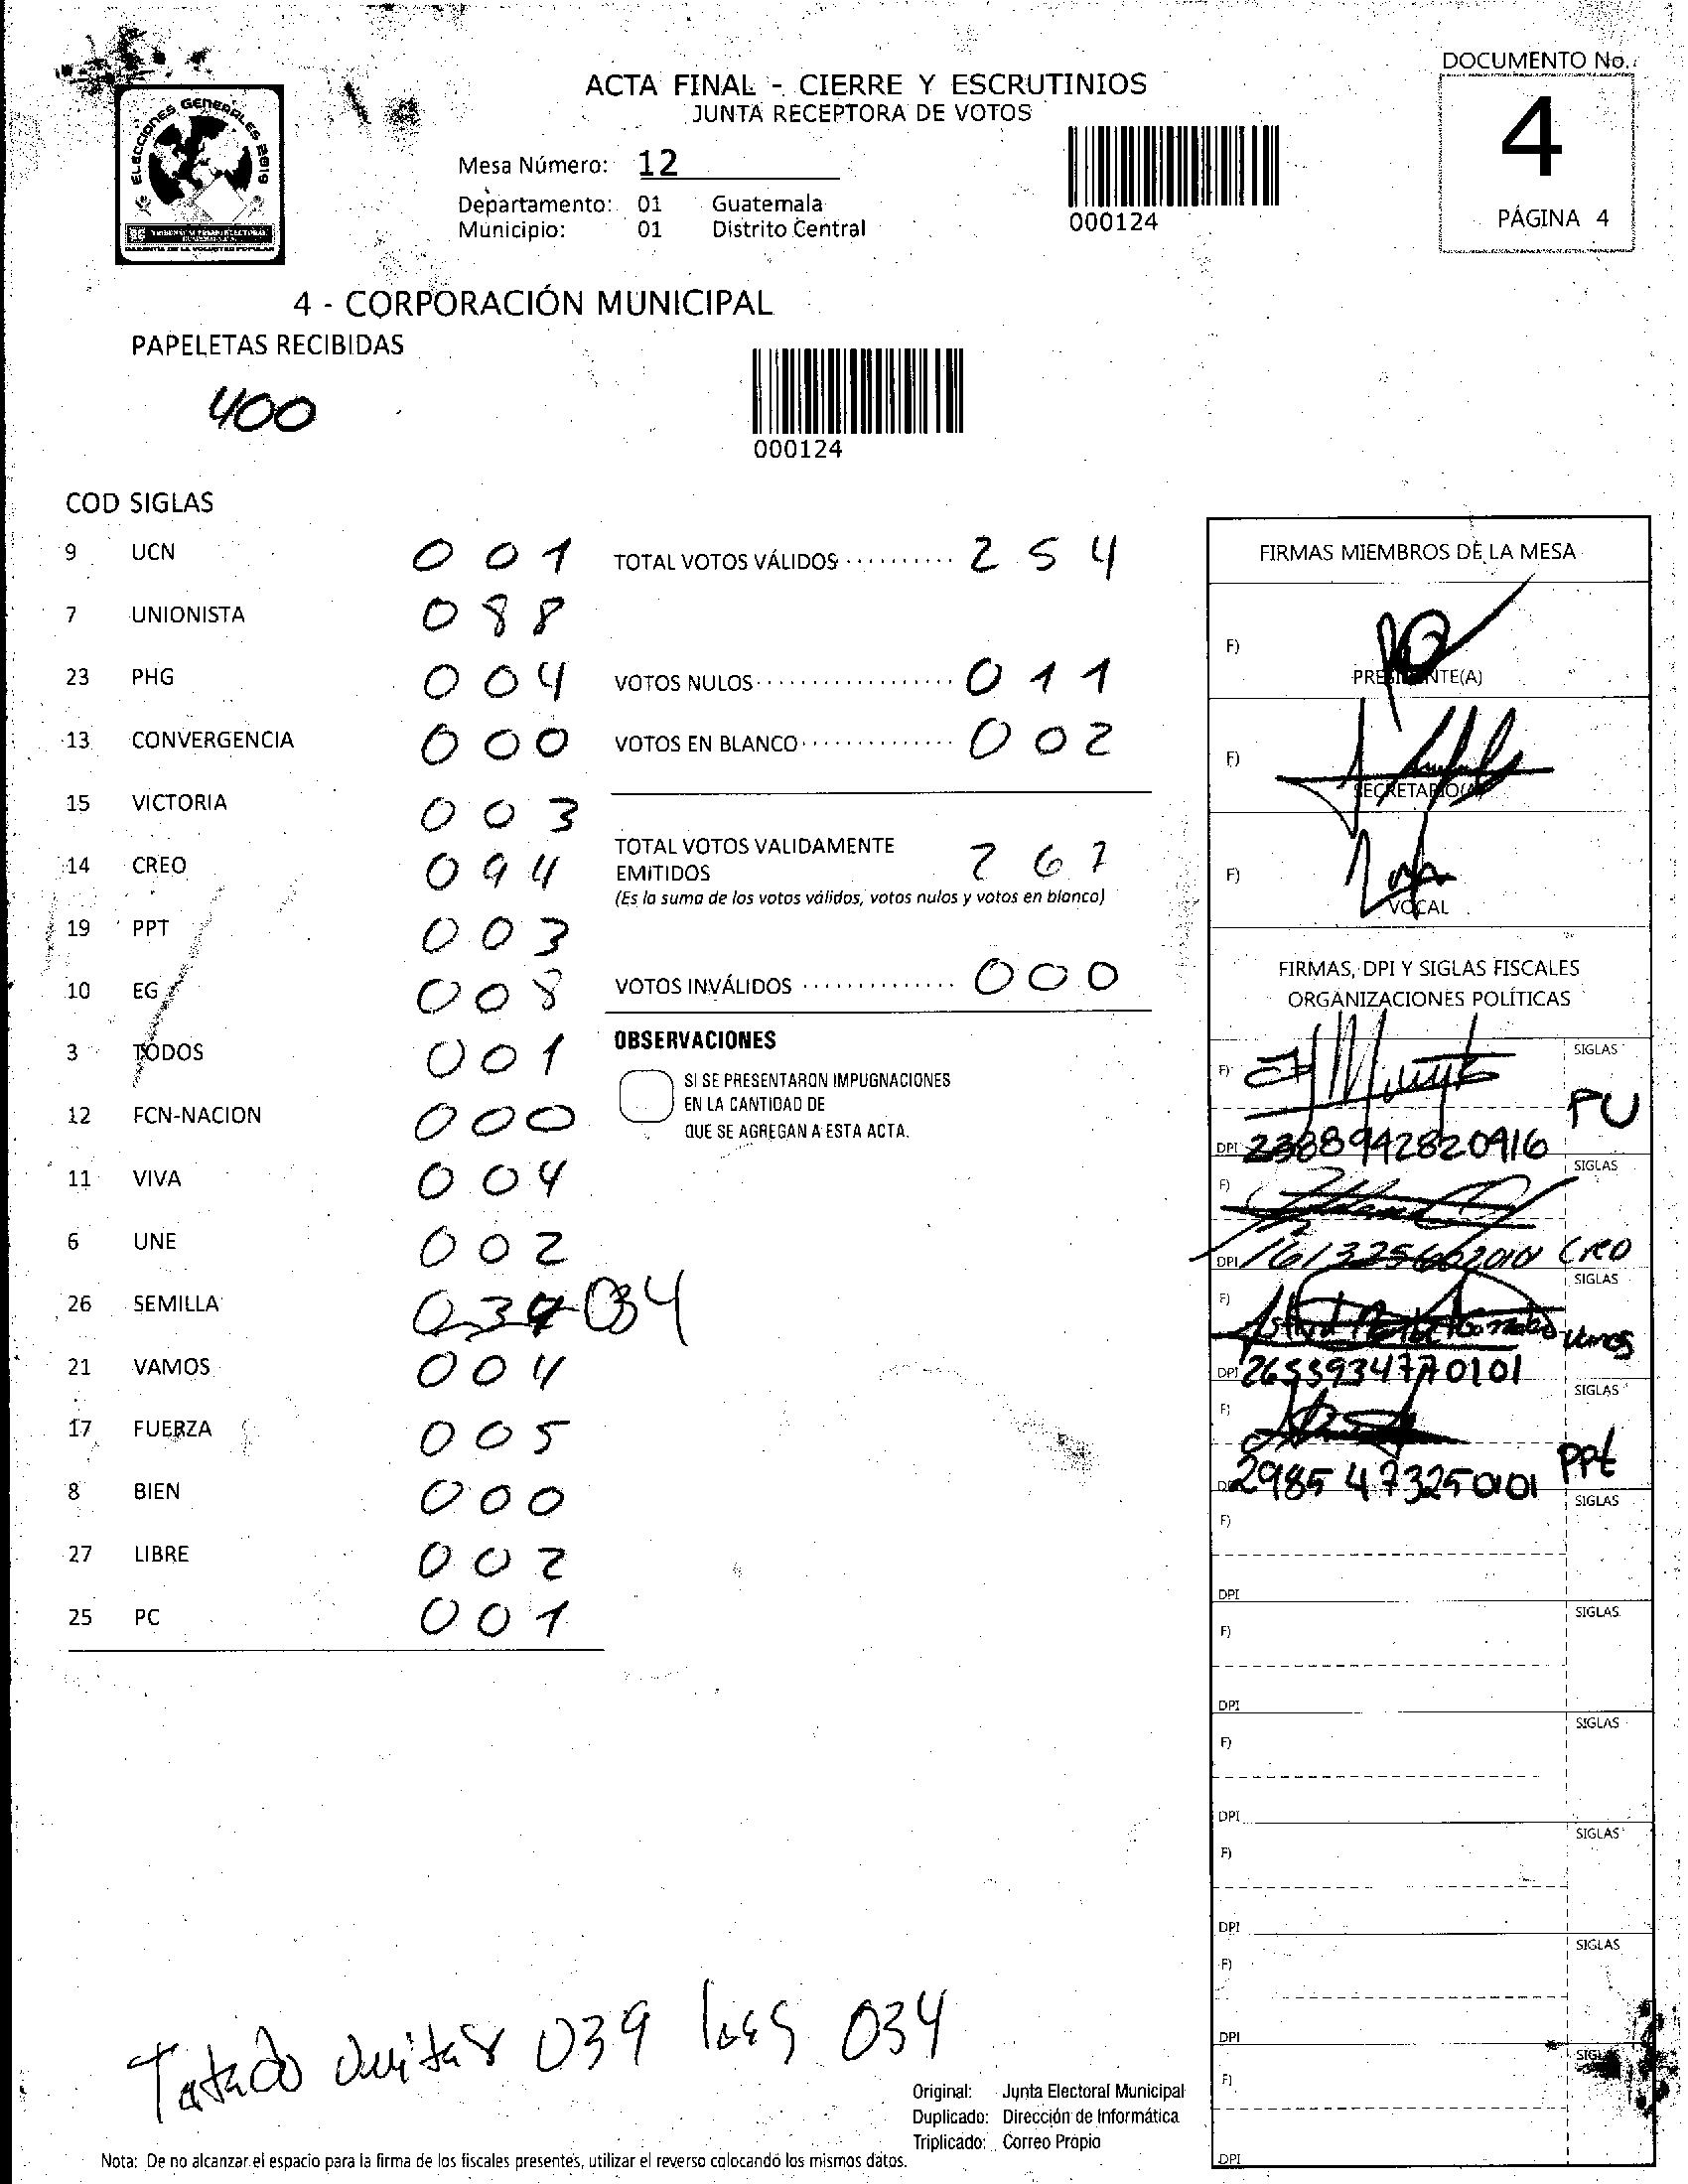 DOCUMENTO No.:
4
PÁGINA 4
ACTA FINAL - CIERRE Y ESCRUTINIOS
JUNTA RECEPTORA DE VOTOS
ELECCIONES GENERALES 2019
Mesa Número: 12
Departamento: 01 Guatemala
Municipio: 01 Distrito Central
000124
4 - CORPORACIÓN MUNICIPAL
PAPELETAS RECIBIDAS
400
000124
COD SIGLAS
9 UCN 001
7 UNIONISTA 088
23 PHG 004
13 CONVERGENCIA 000
15 VICTORIA 003
14 CREO 094
19 PPT 003
10 EG 008
3 TODOS 001
12 FCN-NACION 000
11 VIVA 004
6 UNE 002
26 SEMILLA 039 034
21 VAMOS 004
17 FUERZA 005
8 BIEN 000
27 LIBRE 002
25 PC 001
TOTAL VOTOS VÁLIDOS 254
VOTOS NULOS 011
VOTOS EN BLANCO 002
TOTAL VOTOS VALIDAMENTE
EMITIDOS 267
(Es la suma de los votos válidos, votos nulos y votos en blanco)
VOTOS INVÁLIDOS 000
OBSERVACIONES
SI SE PRESENTARON IMPUGNACIONES
EN LA CANTIDAD DE
QUE SE AGREGAN A ESTA ACTA.
FIRMAS MIEMBROS DE LA MESA
F)
PRESIDENTE(A)
F)
SECRETARIO(A)
F)
VOCAL
FIRMAS, DPI Y SIGLAS FISCALES
ORGANIZACIONES POLÍTICAS
F) SIGLAS
PU
DPI 2388942820916
F) SIGLAS
DPI CREO
F) SIGLAS
DPI 2655934770101
F) SIGLAS
PPt
DPI 2985473250101
F) SIGLAS
DPI
F) SIGLAS
DPI
F) SIGLAS
DPI
F) SIGLAS
DPI
F) SIGLAS
DPI
F) SIGLAS
DPI
039 034
Original: Junta Electoral Municipal
Duplicado: Dirección de Informática
Triplicado: Correo Propio
Nota: De no alcanzar el espacio para la firma de los fiscales presentes, utilizar el reverso colocando los mismos datos.